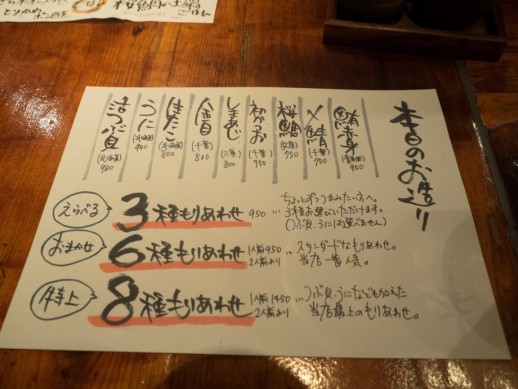 本日のお造り
鮪赤身 950
〆鯖 (千葉) 750
桜鯛 750
初がお (千葉) 750
しまあじ (三重) 800
金目 (千葉) 800
たこ (北海道) 800
うに (北海道) 980
活つぶ貝 (北海道) 980
えらべる 3種もりあわせ 950
ちょっとずつつまみたい方へ。
3種お選びいただけます。
(つぶ貝、うには選べません)
おまかせ 6種もりあわせ 1人前950 2人前より
スタンダードなもりあわせ。
当店一番人気。
特上 8種もりあわせ 1人前1450 2人前より
つぶ貝、うになども加えた
当店最上のもりあわせ。